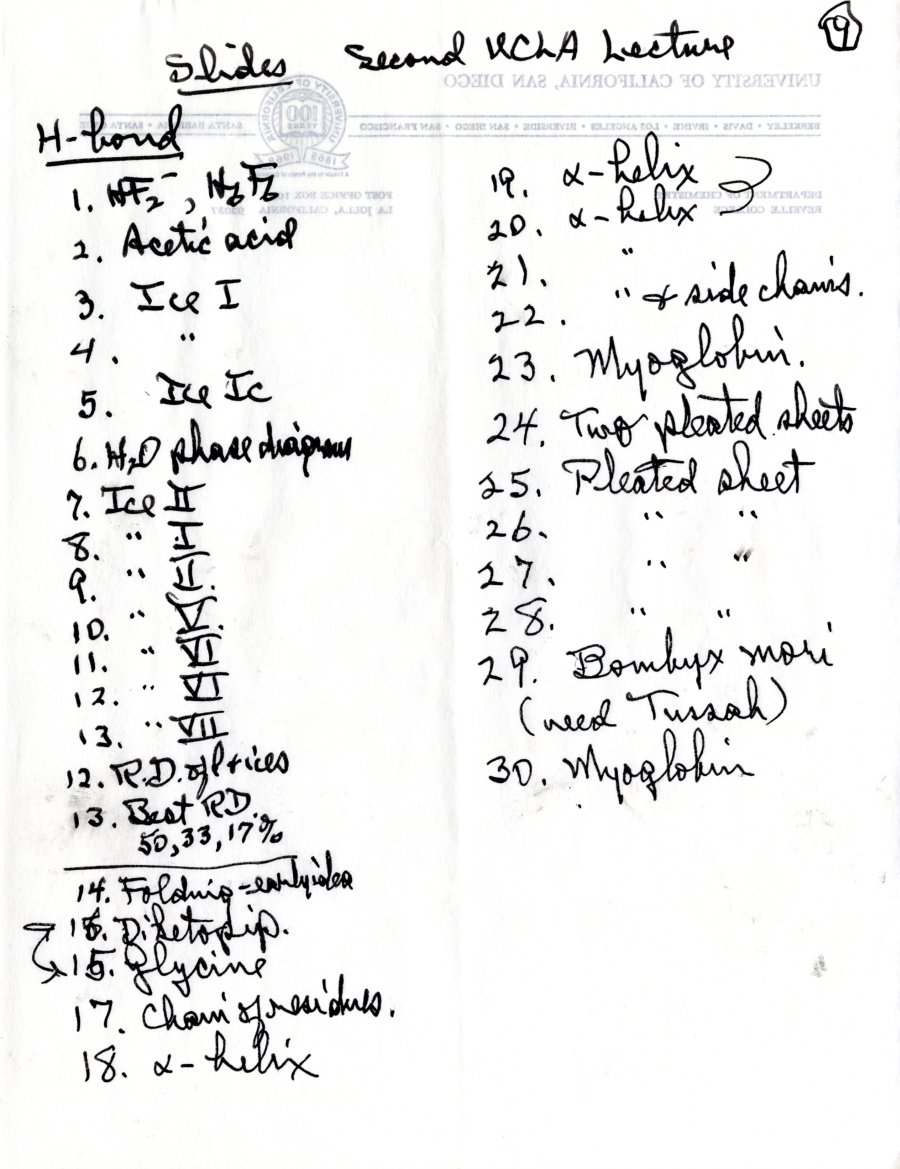 9
Slides Second UCLA Lecture
UNIVERSITY OF CALIFORNIA, SAN DIEGO
BERKELEY • DAVIS • IRVINE • LOS ANGELES • RIVERSIDE • SAN DIEGO • SAN FRANCISCO
SANTA BARBARA • SANTA
POST OFFICE BOX
LA JOLLA, CALIFORNIA 92037
DEPARTMENT OF CHEMISTRY
REVELLE COLLEGE
H-bond
1. HF₂⁻, H₆F₆
2. Acetic acid
3. Ice I
4. "
5. Ice Ic
6. H₂O phase diagram
7. Ice II
8. "
9. "
10. " V
11. " VI
12. " VI
13. " VII
12. R.D. of + ices
13. Best RD.
50, 33, 17%
14. Folding - early idea
16. Diketopip.
15. Glycine
17. Chain of residues.
18. α-helix
19. α-helix
20. α-helix
21. "
22. " & side chains.
23. Myoglobin.
24. Two pleated sheets
25. Pleated sheet
26. " "
27. " "
28. " "
29. Bombyx mori
(need Tussah)
30. Myoglobin